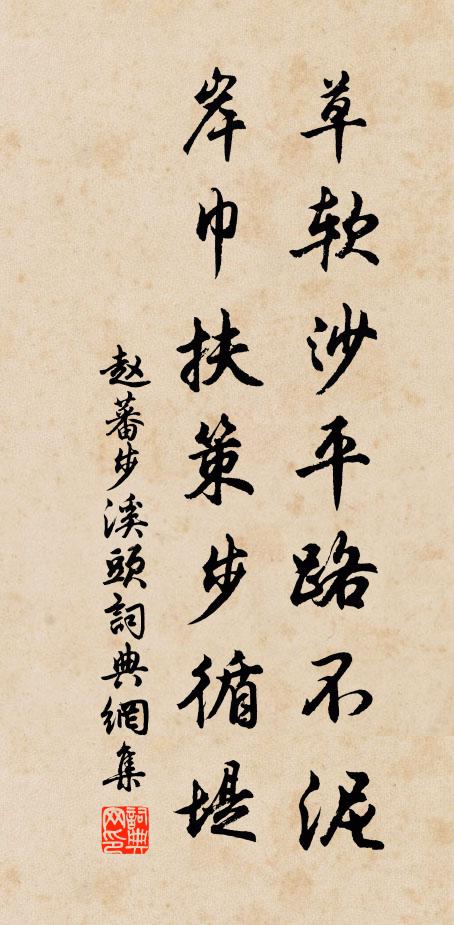 草软沙平路不泥
岸巾扶策步循堤
赵蕃步溪頭詞典網集
詞典网印